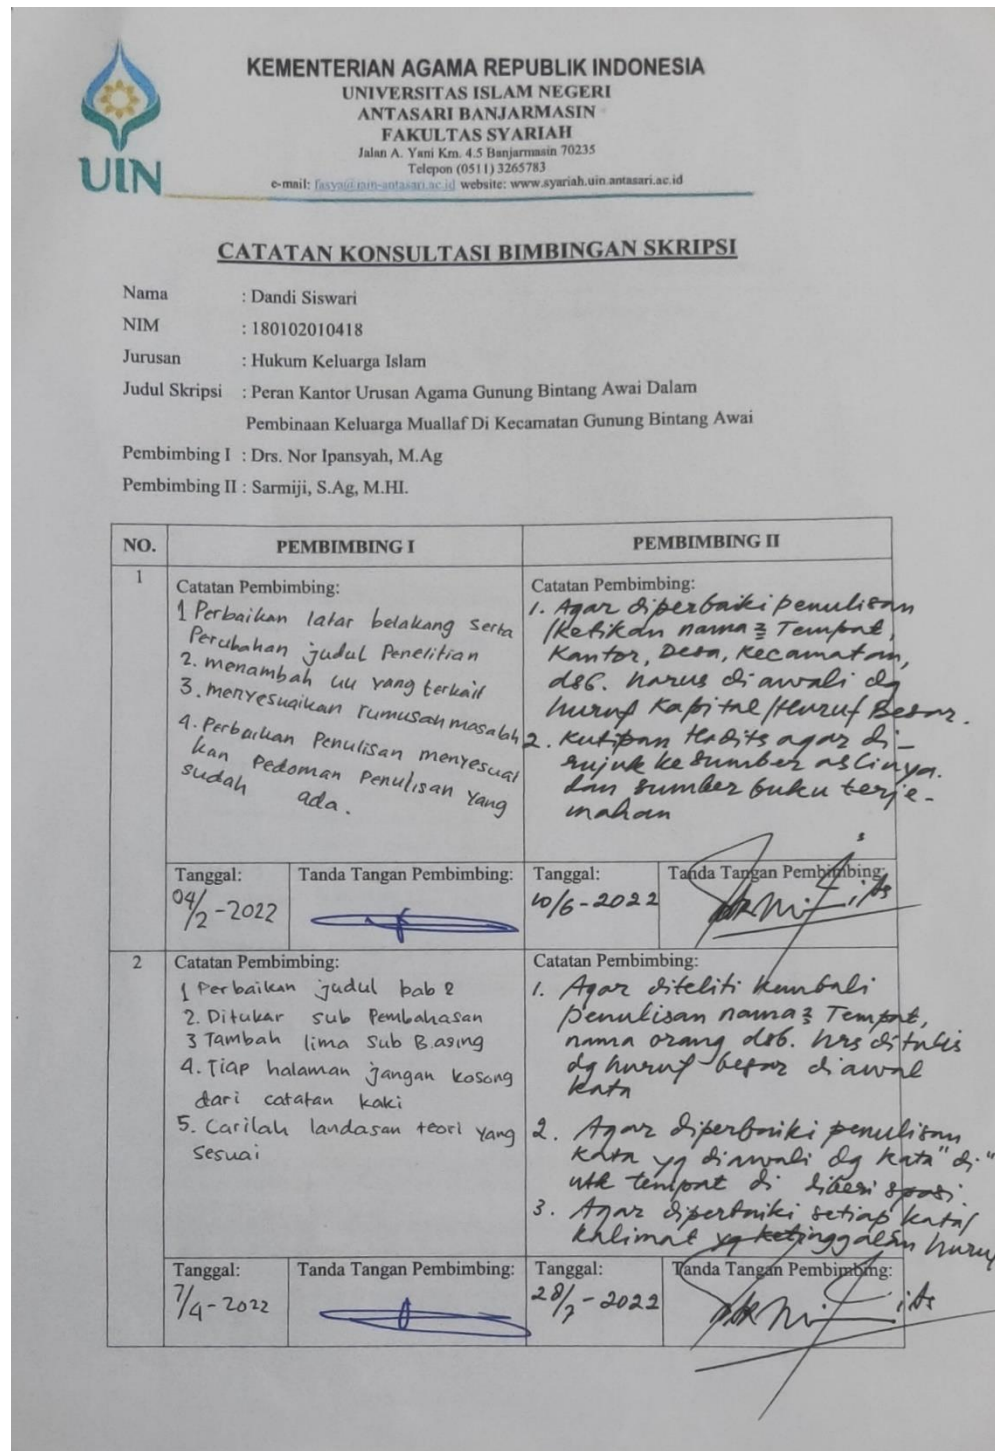 UIN
KEMENTERIAN AGAMA REPUBLIK INDONESIA
UNIVERSITAS ISLAM NEGERI
ANTASARI BANJARMASIN
FAKULTAS SYARIAH
Jalan A. Yani Km. 4.5 Banjarmasin 70235
Telepon (0511) 3265783
e-mail: website: www.syariah.uin.antasari.ac.id
CATATAN KONSULTASI BIMBINGAN SKRIPSI
Nama : Dandi Siswari
NIM : 180102010418
Jurusan : Hukum Keluarga Islam
Judul Skripsi : Peran Kantor Urusan Agama Gunung Bintang Awai Dalam
Pembinaan Keluarga Muallaf Di Kecamatan Gunung Bintang Awai
Pembimbing I : Drs. Nor Ipansyah, M.Ag
Pembimbing II : Sarmiji, S.Ag, M.HI.
NO. PEMBIMBING I PEMBIMBING II
1
Catatan Pembimbing:
1 Perbaikan latar belakang serta
Perubahan judul Penelitian
2. menambah uu yang terkait
3. menyesuaikan rumusan masalah
4. Perbaikan Penulisan menyesuai
kan Pedoman Penulisan Yang
sudah ada.
Catatan Pembimbing:
1. Agar diperbaiki penulisan
/Ketikan nama2 Tempat,
Kantor, Desa, Kecamatan,
dsb. harus di awali dg
huruf Kapital/Huruf Besar.
2. Kutipan Hadits agar di-
rujuk ke sumber aslinya.
dan sumber buku terje-
mahan
Tanggal:
04/2-2022
Tanda Tangan Pembimbing:
Tanggal:
10/6-2022
Tanda Tangan Pembimbing:
2
Catatan Pembimbing:
1 Perbaikan judul bab 2
2. Ditukar sub Pembahasan
3 Tambah lima sub B.asing
4. Tiap halaman jangan kosong
dari catatan kaki
5. Carilah landasan teori yang
sesuai
Catatan Pembimbing:
1. Agar diteliti kembali
penulisan nama2 Tempat,
nama orang dsb. hrs ditulis
dg huruf besar diawal
kata
2. Agar diperbaiki penulisan
kata yg diawali dg kata "di"
utk tempat di diberi spasi.
3. Agar diperbaiki setiap kata/
kalimat yg ketinggalan huruf
Tanggal:
7/4-2022
Tanda Tangan Pembimbing:
Tanggal:
28/7-2022
Tanda Tangan Pembimbing: